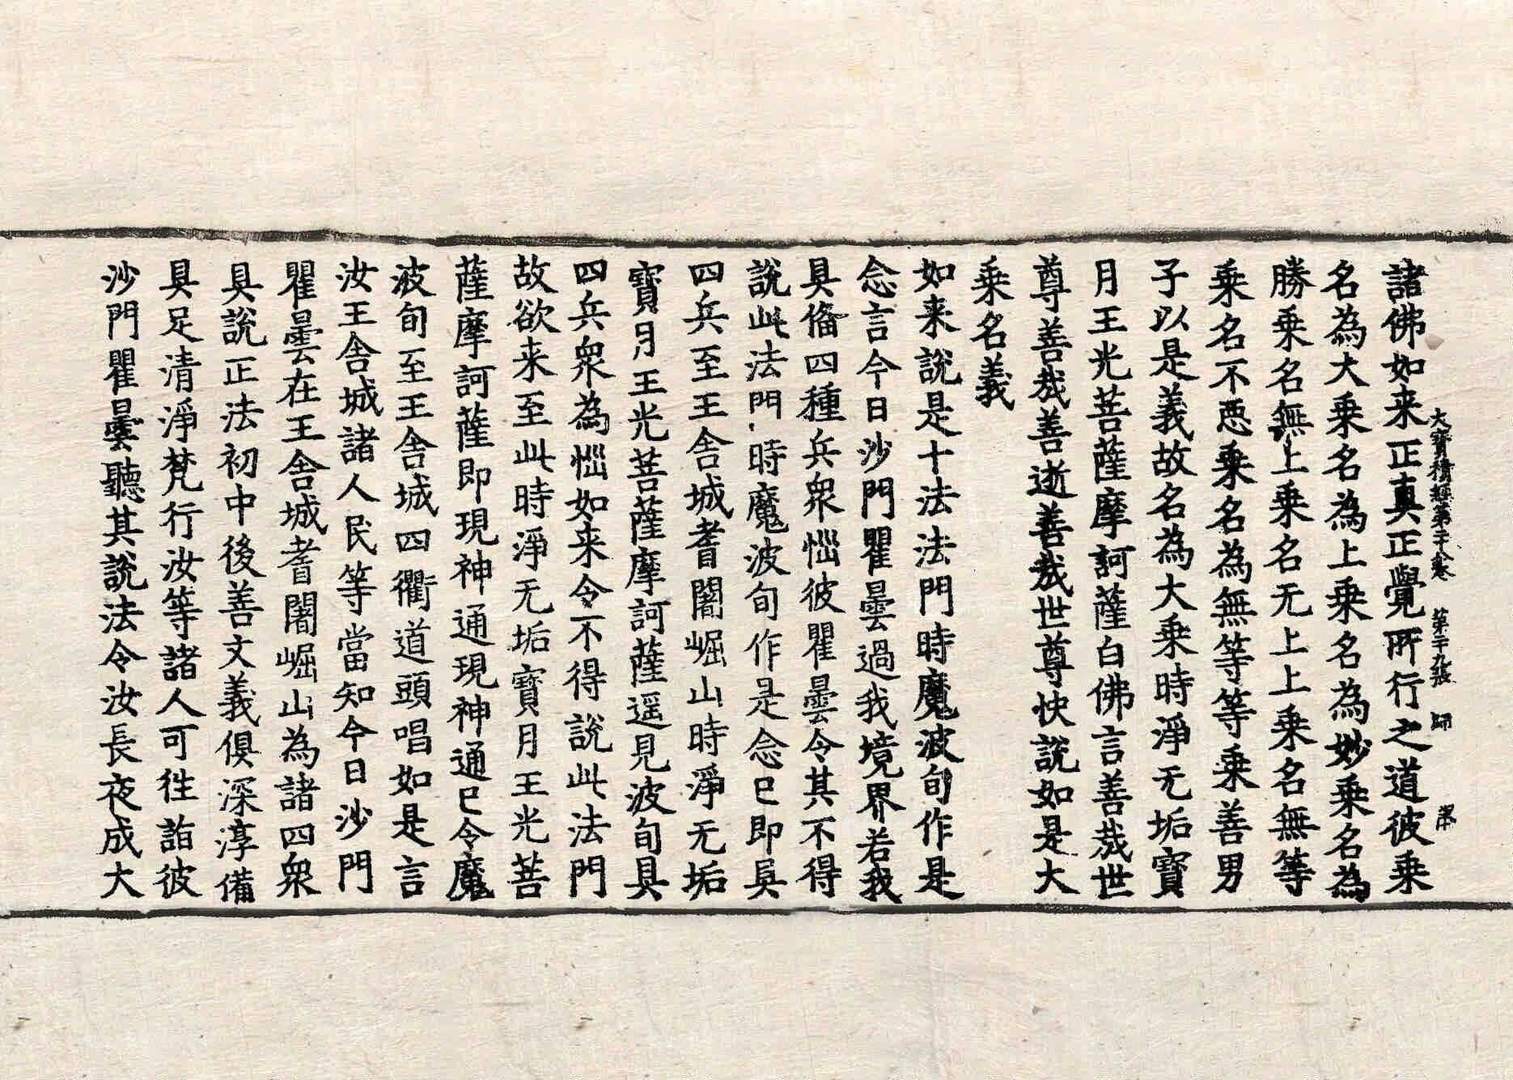 大寶積經第二十八卷 第二十九張 師
諸佛如来正真正覺所行之道彼乗
名為大乗名為上乗名為妙乗名為
勝乗名無上乗名无上上乗名無等
乗名不惡乗名為無等等乗善男
子以是義故名為大乗時淨无垢寶
月王光菩薩摩訶薩白佛言善㢤世
尊善㢤善逝善㢤世尊快說如是大
乗名義
如来說是十法法門時魔波旬作是
念言今日沙門瞿曇過我境界若我
具俻四種兵衆惱彼瞿曇令其不得
說此法門時魔波旬作是念已即與
四兵至王舍城耆闍崛山時淨无垢
寶月王光菩薩摩訶薩遥見波旬具
四兵衆為惱如来令不得說此法門
故欲来至此時淨无垢寶月王光菩
薩摩訶薩即現神通現神通已令魔
波旬至王舍城四衢道頭唱如是言
汝王舍城諸人民等當知今日沙門
瞿曇在王舍城耆闍崛山為諸四衆
具說正法初中後善文義俱深淳備
具足清淨梵行汝等諸人可徃詣彼
沙門瞿曇聽其說法令汝長夜成大